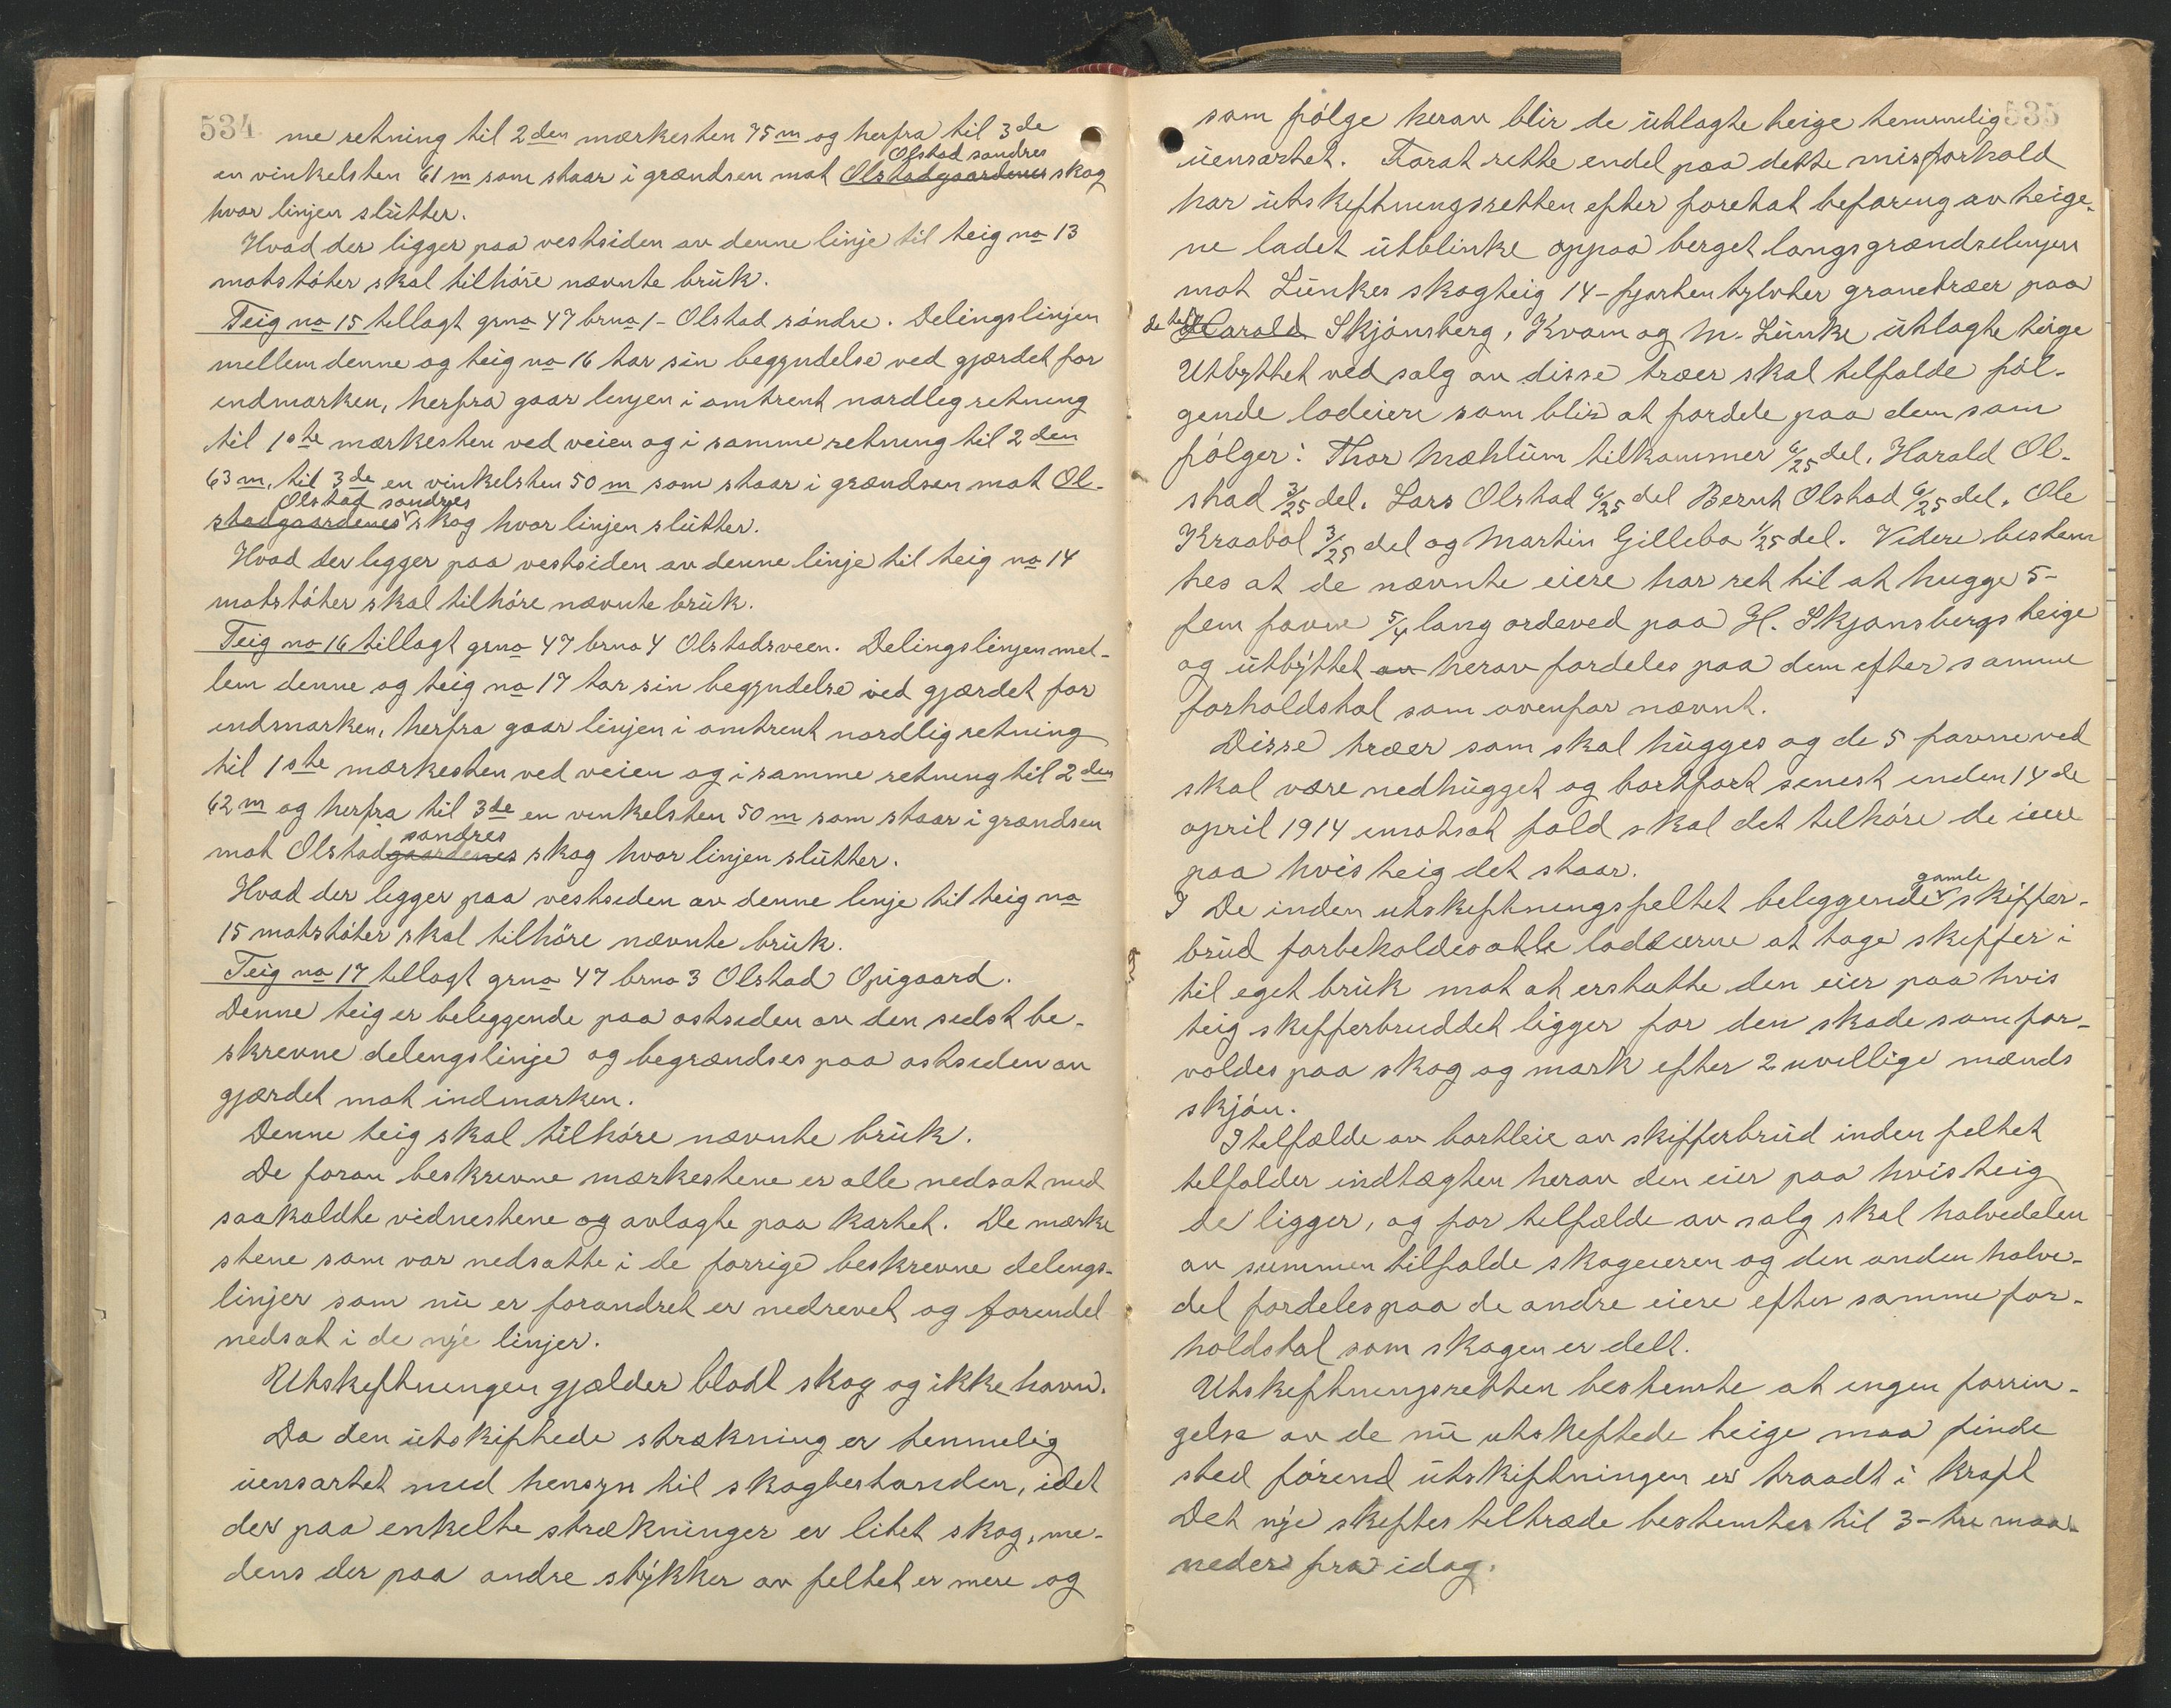 534
me retning til 2den mærkesten 75 m og herfra til 3de
Olstad søndres
en vinkelsten 61 m som staar i grændsen mot Olstadgaardenes skog
hvor linjen slutter.
Hvad der ligger paa vestsiden av denne linje til teig no 13
motstøter skal tilhøre nævnte bruk.
Teig no 15 tillagt grno 47 brno 1 - Olstad søndre. Delingslinjen
mellem denne og teig no 16 tar sin begyndelse ved gjærdet for
indmarken, herfra gaar linjen i omtrent nordlig retning
til 1ste mærkesten ved veien og i samme retning til 2den
63 m, til 3de en vinkelsten 50 m som staar i grændsen mot Ol-
Olstad søndres
stadgaardenes skog hvor linjen slutter.
Hvad der ligger paa vestsiden av denne linje til teig no 14
motstøter skal tilhøre nævnte bruk.
Teig no 16 tillagt grno 47 brno 4 Olstadsveen. Delingslinjen mel-
lem denne og teig no 17 tar sin begyndelse ved gjærdet for
indmarken, herfra gaar linjen i omtrent nordlig retning
til 1ste mærkesten ved veien og i samme retning til 2den
62 m og herfra til 3de en vinkelsten 50 m som staar i grændsen
søndres
mot Olstadgaardenes skog hvor linjen slutter.
Hvad der ligger paa vestsiden av denne linje til teig no
15 motstøter skal tilhøre nævnte bruk.
Teig no 17 tillagt grno 47 brno 3 Olstad Opigaard.
Denne teig er beliggende paa østsiden av den sidst be-
skrevne delingslinje og begrændses paa østsiden av
gjærdet mot indmarken.
Denne teig skal tilhøre nævnte bruk.
De foran beskrevne mærkestene er alle nedsat med
saakaldte vidnestene og avlagte paa kartet. De mærke
stene som var nedsatte i de forrige beskrevne delings-
linjer som nu er forandret er nedrevet og forendel
nedsat i de nye linjer.
Utskiftningen gjælder blodt skog og ikke havn.
Da den utskiftede strækning er temmelig
uensartet med hensyn til skogbestanden, idet
der paa enkelte strækninger er litet skog, me-
dens der paa andre stykker av feltet er mere og
535
som følge herav blir de utlagte teige temmelig
uensartet. Forat rette endel paa dette misforhold
har utskiftningsretten efter foretat befaring av teige-
ne ladet utblinke oppaa berget langs grændselinjen
mot Lunkes skogteig 14 - fjorten tylvter granetræer paa
de til Harald Skjønsberg, Kvam og M. Lunke utlagte teige
Utbyttet ved salg av disse træer skal tilfalde føl-
gende lodeiere som blir at fordele paa dem som
følger: Thor Mæhlum tilkommer 6/25 del, Harald Ol-
stad 3/25 del. Lars Olstad 6/25 del Bernt Olstad 6/25 del. Ole
Kraabøl 3/25 del og Martin Gillebo 1/25 del. Videre bestem
tes at de nævnte eiere har ret til at hugge 5-
fem favne 5/4 lang ordeved paa H. Skjønsbergs teige
og utbyttet av herav fordeles paa dem efter samme
forholdstal som ovenfor nævnt.
Disse træer som skal hugges og de 5 favne ved
skal være nedhugget og bortført senest inden 14de
april 1914 imotsat fald skal det tilhøre de iere
paa hvis teig det staar.
gamle
I De inden utskiftningsfeltet beliggende skiffer-
brud forbeholdes alle lodeierne at tage skiffer i
til eget bruk mot at erstatte den eier paa hvis
teig skifferbruddet ligger for den skade som for-
voldes paa skog og mark efter 2 uvillige mænds
skjøn.
I telfælde av bortleie av skifferbrud inden feltet
telfalder indtægten herav den eier paa hvis teig
de ligger, og for telfælde av salg skal halvedelen
av summen tilfalde skogeieren og den anden halve-
del fordeles paa de andre eiere efter samme for-
holdstal som skogen er delt.
Utskiftningsretten bestemte at ingen forrin-
gelse av de nu utskiftede teige maa finde
sted førend utskiftningen er traadt i kraft
Det nye skiftes tiltræde bestemtes til 3 - tre maa-
neder fra idag.